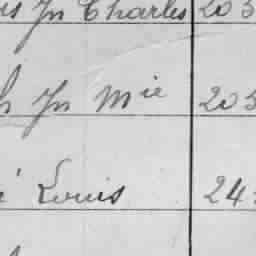 Jn Charles 205
Jn Mie 205
Louis 24